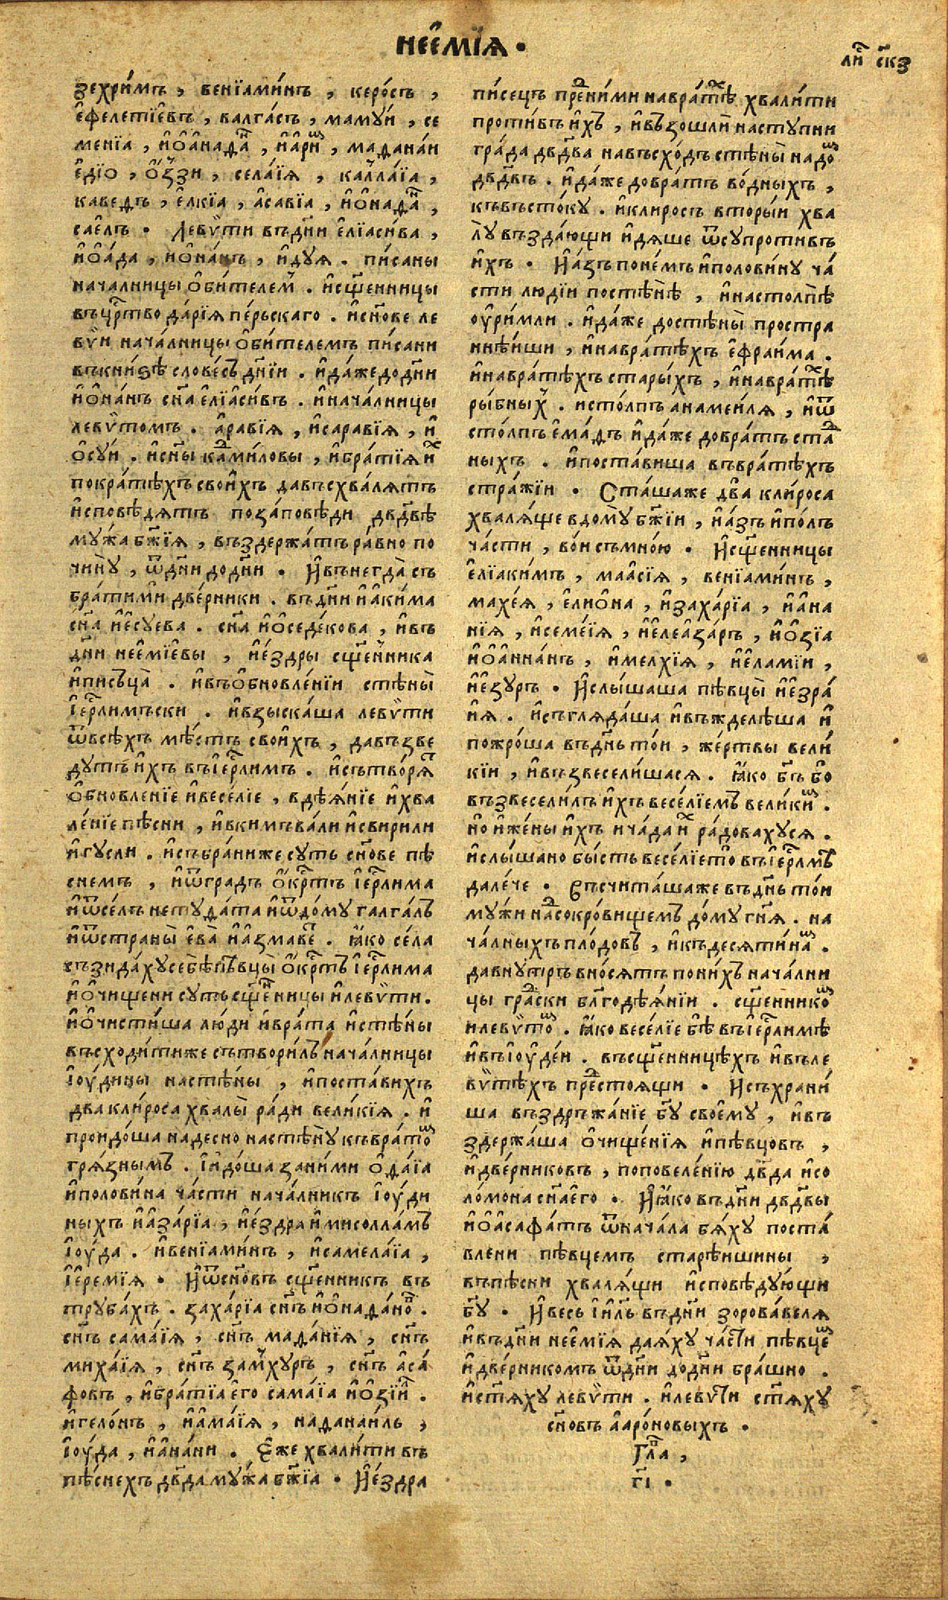 нееⷨмїѧ •
лиⷭ҇ ск҃з
зехри́мъ , венїами́нъ , керо́съ ,
е҆фелетїе́въ , валга́съ , маму́й , се
менїа , и҆ѡ҆анадаⷩ҇ , и҆а҆ри́ⷨ , мадана́и
е҆дїо , о҆ꙋ҆зи , села́їѧ , калла́їа ,
каведъ , е҆лкїа , а҆савїа , и҆ѻ҆надаⷩ҇ ,
сае́лъ • Леѵѵ҄ти въдн҃и е҆лїаси́ва ,
и҆ѻ҆а́да , и҆ѻ҆на́нъ , и҆дꙋѧ . пи́саны
нача́лницы ѻ҆би́телеⷨ . и҆сщ҃е́нницы
въцрⷭ҇тво да́рїѧ пе́рьскаго . и҆сн҃ове ле
ви҄и нача́лницы ѻ҆би́телемъ пи́сани
въкни́ѕѣ слове́съ дн҃їи . и҆да́же додн҃и
и҆ѻ҆на́нъ сн҃а е҆лїаси́въ . и҆нача́лницы
леви҄томъ . а҆равїѧ , и҆саравїѧ , и҆
ѻ҆сꙋ́и . и҆сн҃ы каⷣми́ловы , и҆бра́тїѧ и҆ⷯ
покра́тѣхъ свои҆хъ давъсхва́лѧтъ
и҆сповѣ́дѧтъ поза́повѣди дв҃двѣ
мꙋ́жа бж҃їѧ , въздержа́тъ ра́вно по
чи́нꙋ , ѿдн҃и додн҃и • И҆внегда̀ съ
бра́тими две́рники . въдн҃и и҆а҆ки́ма
сн҃а и҆е҆сꙋева . сн҃а и҆ѻ҆седе́кова , и҆въ
дн҃и неемїевы , и҆е҆́здры сщ҃е́нника
и҆писъца̀ . и҆въѻ҆бновле́нїи стѣны̀
і҆ерⷭ҇лимъски . и҆взыска́ша леви҄ти
ѿвсѣ́хъ мѣ́стъ свои́хъ , давъзве
дꙋ́тъ и҆хъ въі҆ерⷭ҇ли́мъ . и҆сътво́рѧⷮ
ѻ҆бновле́нїе и҆весе́лїе , вдѣѧ́нїе и҆хва
ле́нїе пѣ́сни , и҆вкимъва́ли и҆свирили
и҆гꙋсли . и҆съ бра́ни же сꙋть сн҃ове пѣ
снемъ , и҆ѿградъ ѻ҆крⷭ҇тъ і҆ерⷭ҇ли́ма
и҆ѿсе́лъ нетꙋда́та и҆ѿдо́мꙋ галга́лъ
и҆ѿстраны̀ е҆ва̀ и҆а҆змавеⷮ . ꙗ҆ко се́ла
възида́хꙋ себѣ̀ пѣвцы̀ ѻ҆крⷭ҇тъ і҆ерⷭ҇ли́ма
и҆ѻ҆чищени сꙋ́ть сщ҃е́нницы и҆леви҄ти .
и҆ѻ҆чисти́ша лю́ди и҆врата̀ и҆стѣ́ны
въсходи́ти же сътвори́лъ нача́лницы
і҆ꙋ҆дины настѣ́ны , и҆поста́вихъ
два кли́роса хвалы̀ ра́ди вели́кїѧ . и҆
проидо́ша надесно настѣ́нꙋ къвра́тоⷨ
грѧ́знымъ . і҆идо́ша зани́ми ѻ҆да́їа
и҆полови́на ча́сти нача́лникъ і҆ꙋ҆ди
ныхъ и҆а҆за́рїа , и҆е҆здра и҆мисолла́мъ
і҆ꙋ҆да . и҆венїами́нъ , и҆самела́їа ,
і҆ереми́їѧ • И҆ѿсн҃овъ сщ҃е́нникъ въ
трꙋба́хъ . заха́рїа сн҃ъ и҆ѻ҆нада́ноⷡ .
сн҃ъ сама́їѧ , сн҃ъ мада́нїѧ , сн҃ъ
миха́їѧ , сн҃ъ замхꙋръ , сн҃ъ а҆са́
фовъ , и҆бра́тїа е҆го сама́їа и҆ѻ҆зїи́ⷧ .
и҆гело́нъ , и҆а҆ма́їѧ , надана́иль ,
і҆ꙋ҆да , и҆а҆на́ни . Е҆же хвали́ти въ
пѣ́снехъ дв҃да мꙋ́жа бж҃їа • И҆е҆́здра
пи́сецъ преⷣни́ми навра́тѣⷯ хвали́ти
проти́въ и҆́хъ , и҆възошли́ настꙋпни
гра́да дв҃два навъсхо́дъ стѣны̀ надоⷨ
дв҃двъ . и҆да́же довра́тъ во́дныхъ ,
къвъсто́кꙋ . и҆кли́росъ вторы́й хва
лꙋ̀ въздаю́щи и҆дѧше ѿсꙋпроти́въ
и҆хъ • И҆а́зъ поне́мъ и҆полови́нꙋ ча́
сти людїи постѣ́нѣ , и҆настолпѣ̀
ѹ҆ри́мли . и҆да́же достѣны̀ простра
ннѣ́йши , и҆навра́тѣхъ е҆фраи́ма .
и҆навра́тѣхъ ста́рыхъ , и҆навра́тѣⷯ
ры́бныⷯ . исто́лпъ анамеи́лѧ , и҆ѿ
сто́лпъ е҆ма́дъ и҆да́же довра́тъ стаⷣ
ныхъ . и҆поста́виша въвра́тѣхъ
стра́жїи • Ста́шаже два̀ кли́роса
хвалѧ́ще вдомꙋ̀ бж҃їи , и҆а́зъ и҆по́лъ
ча́сти , во́и съмно́ю • И҆сщ҃е́нницы
е҆лїаки́мъ , маасїѧ , венїами́нъ ,
махе́ѧ , е҆лиѻ҆на , и҆заха́рїа , и҆а҆на
нїѧ , и҆семе́їѧ , и҆е҆леаза́ръ , и҆ѻ҆зїа
и҆ѻ҆а҆нна́нъ , и҆мелхїѧ , и҆е҆ламїи ,
и҆е҆зꙋръ • И҆слы́шаша пѣвцы̀ и҆е҆зра́
и҆ѧ . и҆съглѧда́ша и҆въжделѣ́ша и҆
пожро́ша въдн҃ь то́и , же́ртвы вели́
кїи , и҆възвесели́шасѧ . ꙗ҆ко бг҃ъ бо
възвесели́лъ и҆хъ весе́лїемъ вели́киⷨ .
но и҆же́ны и҆хъ и ча́да и҆ⷯ ра́довахꙋсѧ .
и҆слы́шано бы́сть весе́лїе то̀ въі҆ерⷭ҇лмъ̀
дале́че • Съсчита́шаже въдн҃ь то́и
мꙋ́жи наⷣсокро́вищемъ до́мꙋ гн҃ѧ . на
ча́лныхъ пло́довъ , и҆къдесѧти́наⷨ .
давнꙋтръ вно́сѧтъ пони́хъ нача́лни
цы граⷣски благодѣѧ́нїи . сщ҃е́нникоⷨ
и҆леви҄тоⷨ . ꙗ҆ко весе́лїе бѣ̀ въі҆ерⷭ҇ли́мѣ
и҆въі҆ꙋ҆де́и . въсщ҃е́нницѣхъ и҆въле
ви҄тѣхъ преⷣстоѧщи • И҆съхрани́
ша въздръжа́нїе бг҃ꙋ своемꙋ , и҆въ
здержа́ша ѻ҆чище́нїѧ и҆пѣвцовъ ,
и҆две́рниковъ , поповеле́нїю дв҃да и҆со
ло́мона сн҃а е҆го • И҆ꙗ҆ко въдн҃и дв҃двы
и҆ѻ҆аса́фатъ ѿнача́ла бѧ́хꙋ поста́
влени пѣвцемъ старѣ́ишины ,
въпѣсни хвалѧ́щи и҆сповѣ́дꙋющи
бг҃ꙋ • И҆весь і҆и҃ль въдн҃и зорова́велѧ
и҆въдн҃и нее҆мїѧ даѧ́хꙋ ча́сти пѣвцеⷨ
и҆две́рникомъ ѿдн҃и додн҃и бра́шно .
и҆ст҃ѧхꙋ леви҄ти . и҆леви҄ти ст҃ѧхꙋ
сн҃овъ а҆аро́новыхъ •
Глаⷡ҇ ,
г҃і •